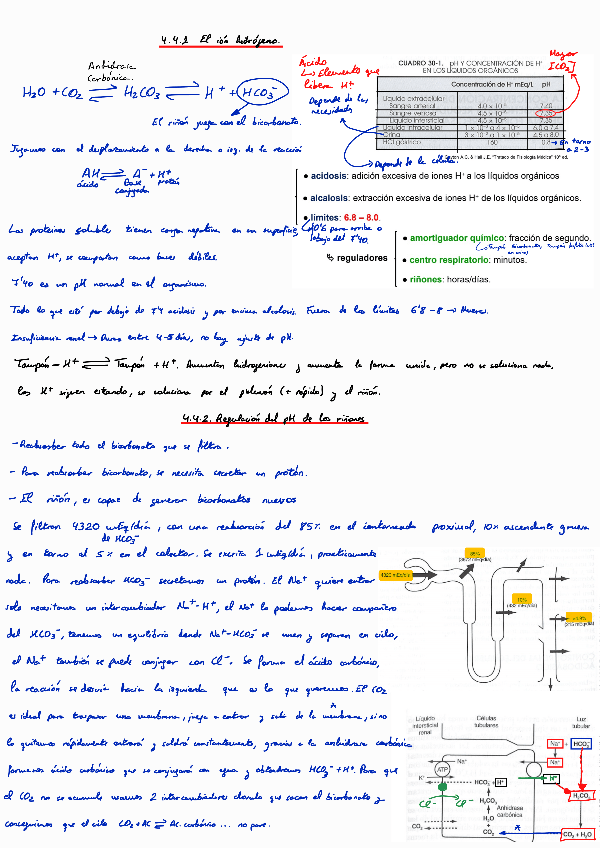 4.4.1 El ión hidrógeno.
Anhidrasa
Carbónica.
H₂O + CO₂ ⇌ H₂CO₃ ⇌ H⁺ + HCO₃⁻
El riñón juega con el bicarbonato.
Jugamos con el desplazamiento a la derecha o izq. de la reacción
AH ⇌ A⁻ + H⁺
ácido Base conjugada protón
Ácido
Lo Elemento que
libera H⁺
Depende de las
necesidades
Mayor
[CO₂]
CUADRO 30-1. pH Y CONCENTRACIÓN DE H⁺
EN LOS LÍQUIDOS ORGÁNICOS
Concentración de H⁺ mEq/L pH
Líquido extracelular
Sangre arterial 4.0 x 10⁻⁵ 7.40
Sangre venosa 4.5 x 10⁻⁵ 7.35
Líquido intersticial 4.5 x 10⁻⁵ 7.35
Líquido intracelular 1 x 10⁻³ a 4 x 10⁻⁵ 6.0 a 7.4
Orina 3 x 10⁻² a 1 x 10⁻⁵ 4.5 a 8.0
HCl gástrico 160 0.8
En torno
a 2-3
Guyton A.C. & Hall J.E. "Tratado de Fisiología Médica" 10ª ed.
Depende de la célula.
• acidosis: adición excesiva de iones H⁺ a los líquidos orgánicos
• alcalosis: extracción excesiva de iones H⁺ de los líquidos orgánicos.
• límites: 6.8 – 8.0.
0'6 para arriba o
abajo del 7'40.
reguladores
• amortiguador químico: fracción de segundo.
• centro respiratorio: minutos.
• riñones: horas/días.
Las proteínas solubles tienen carga negativa en su superficie,
aceptan H⁺, se comportan como bases débiles.
7'40 es un pH normal en el organismo.
Todo lo que esté por debajo de 7'4 acidosis y por encima alcalosis. Fuera de los límites 6'8-8 → Muerte.
Insuficiencia renal → Dura entre 4-5 días, no hay ajuste de pH.
Tampón-H⁺ ⇌ Tampón + H⁺. Aumentan hidrogeniones y aumenta la forma unida, pero no se soluciona nada,
los H⁺ siguen estando, se soluciona por el pulmón (+ rápido) y el riñón.
4.4.2. Regulación del pH de los riñones
- Reabsorber todo el bicarbonato que se filtra.
- Para reabsorber bicarbonato, se necesita secretar un protón.
- El riñón, es capaz de generar bicarbonatos nuevos
Se filtran 4320 mEq/día, con una reabsorción del 85% en el contorneado proximal, 10% ascendente gruesa
de HCO₃⁻
y en torno al 5% en el colector. Se excreta 1 mEq/día, prácticamente
nada. Para reabsorber HCO₃⁻ secretamos un protón. El Na⁺ quiere entrar
solo necesitamos un intercambiador Na⁺-H⁺, el Na⁺ lo podemos hacer compañero
del HCO₃⁻, tenemos un equilibrio donde Na⁺-HCO₃⁻ se unen y separan en ciclo,
el Na⁺ también se puede conjugar con Cl⁻. Se forma el ácido carbónico,
la reacción se desvía hacia la izquierda que es lo que queremos. El CO₂
es ideal para traspasar una membrana, juega a entrar y salir de la membrana, si no
lo quitamos rápidamente entrará y saldrá constantemente, gracias a la anhidrasa carbónica
formemos ácido carbónico que se conjugará con agua y obtendremos HCO₃⁻ + H⁺. Para que
el CO₂ no se acumule usamos 2 intercambiadores clorados que sacan el bicarbonato y
conseguimos que el ciclo CO₂ + AC ⇌ Ac. carbónico ... no pare.
4320 mEq/día
85%
(3672 mEq/día)
10%
(432 mEq/día)
(215 mEq/día)
Líquido
intersticial
renal
Células
tubulares
Luz
tubular
Na⁺ + HCO₃⁻
Na⁺
Na⁺
ATP
K⁺
H⁺
HCO₃⁻ + H⁺
Cl⁻
Cl⁻
H₂CO₃
H₂CO₃
Anhidrasa
carbónica
H₂O
CO₂
CO₂
CO₂ + H₂O